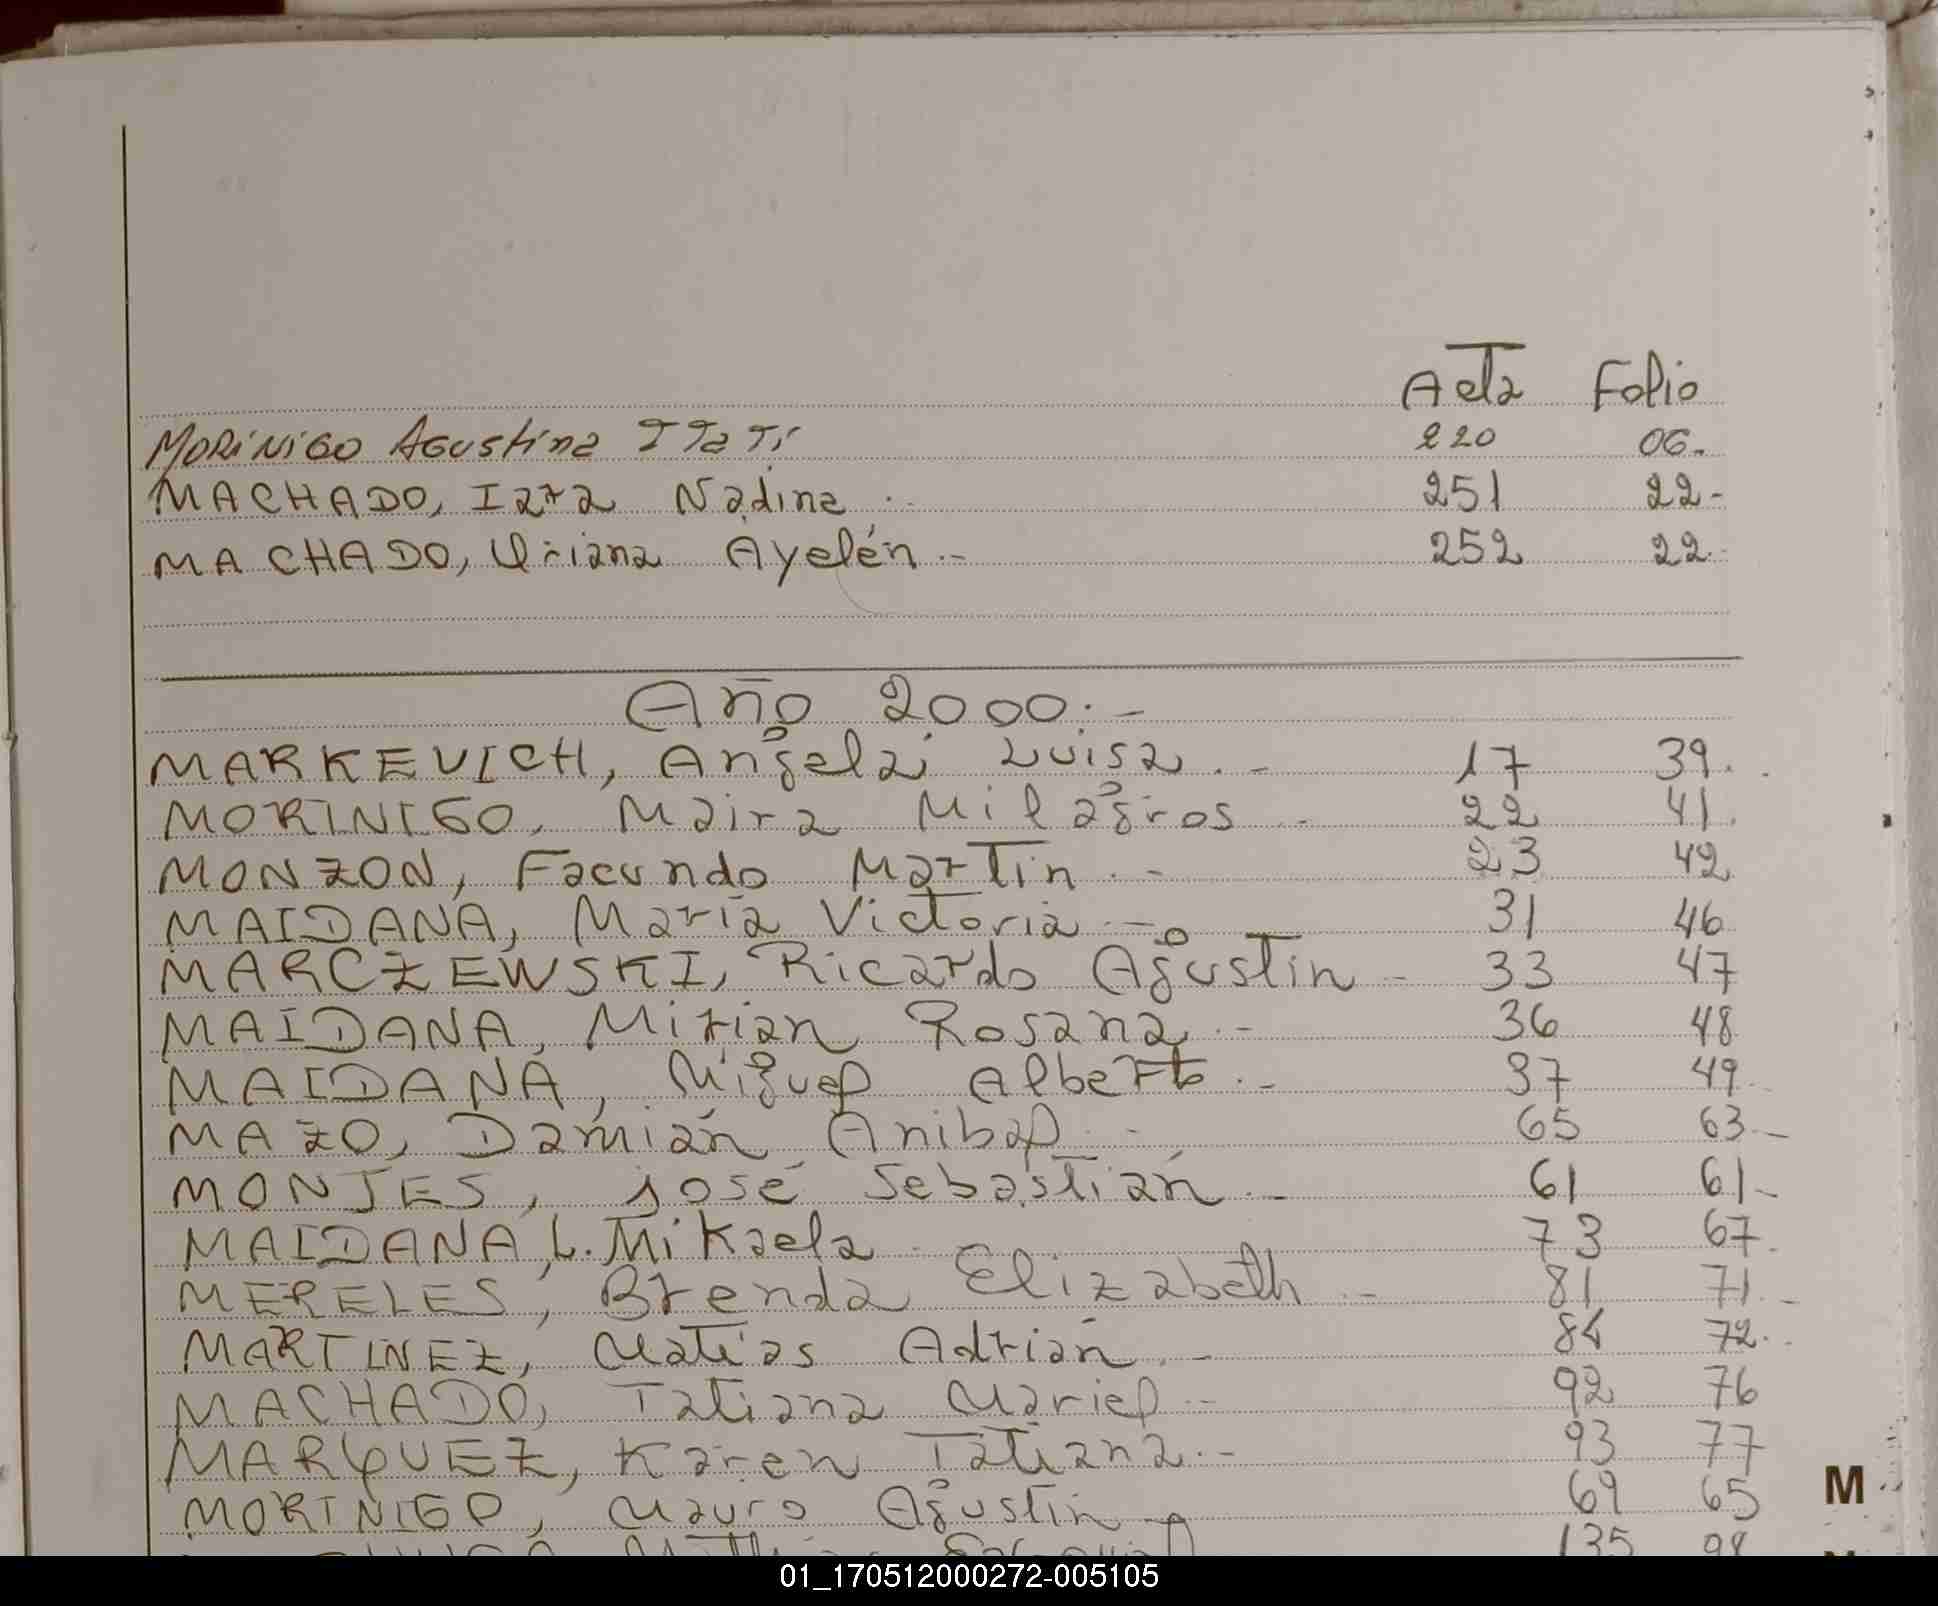 Acta Folio
MORINIGO Agustina ITaTí 220 06.
MACHADO, Iara Nadina .- 251 22-
MACHADO, Uriana Ayelén .- 252 22.-
Año 2000.-
MARKEVICH, Angela Luisa.- 17 39.
MORINIGO, Maira Milagros .- 22 41.
MONZON, Facundo Martin.- 23 42
MAIDANA, María Victoria.- 31 46
MARCZEWSKI, Ricardo Agustin- 33 47
MAIDANA, Mirian Rosana.- 36 48
MAIDANA, Miguel Alberto.- 37 49.
MAZO, Damián Anibal.- 65 63.-
MONJES, José Sebastián.- 61 61-
MAIDANA, L. Mikaela 73 67.
MERELES, Brenda Elizabeth.- 81 71.-
MARTINEZ, Matías Adrián.- 84 72.-
MACHADO, Tatiana Mariel.- 92 76
MARQUEZ, Karen Tatiana.- 93 77
MORINIGO, Mauro Agustin 69 65
135 98
M
01_170512000272-005105